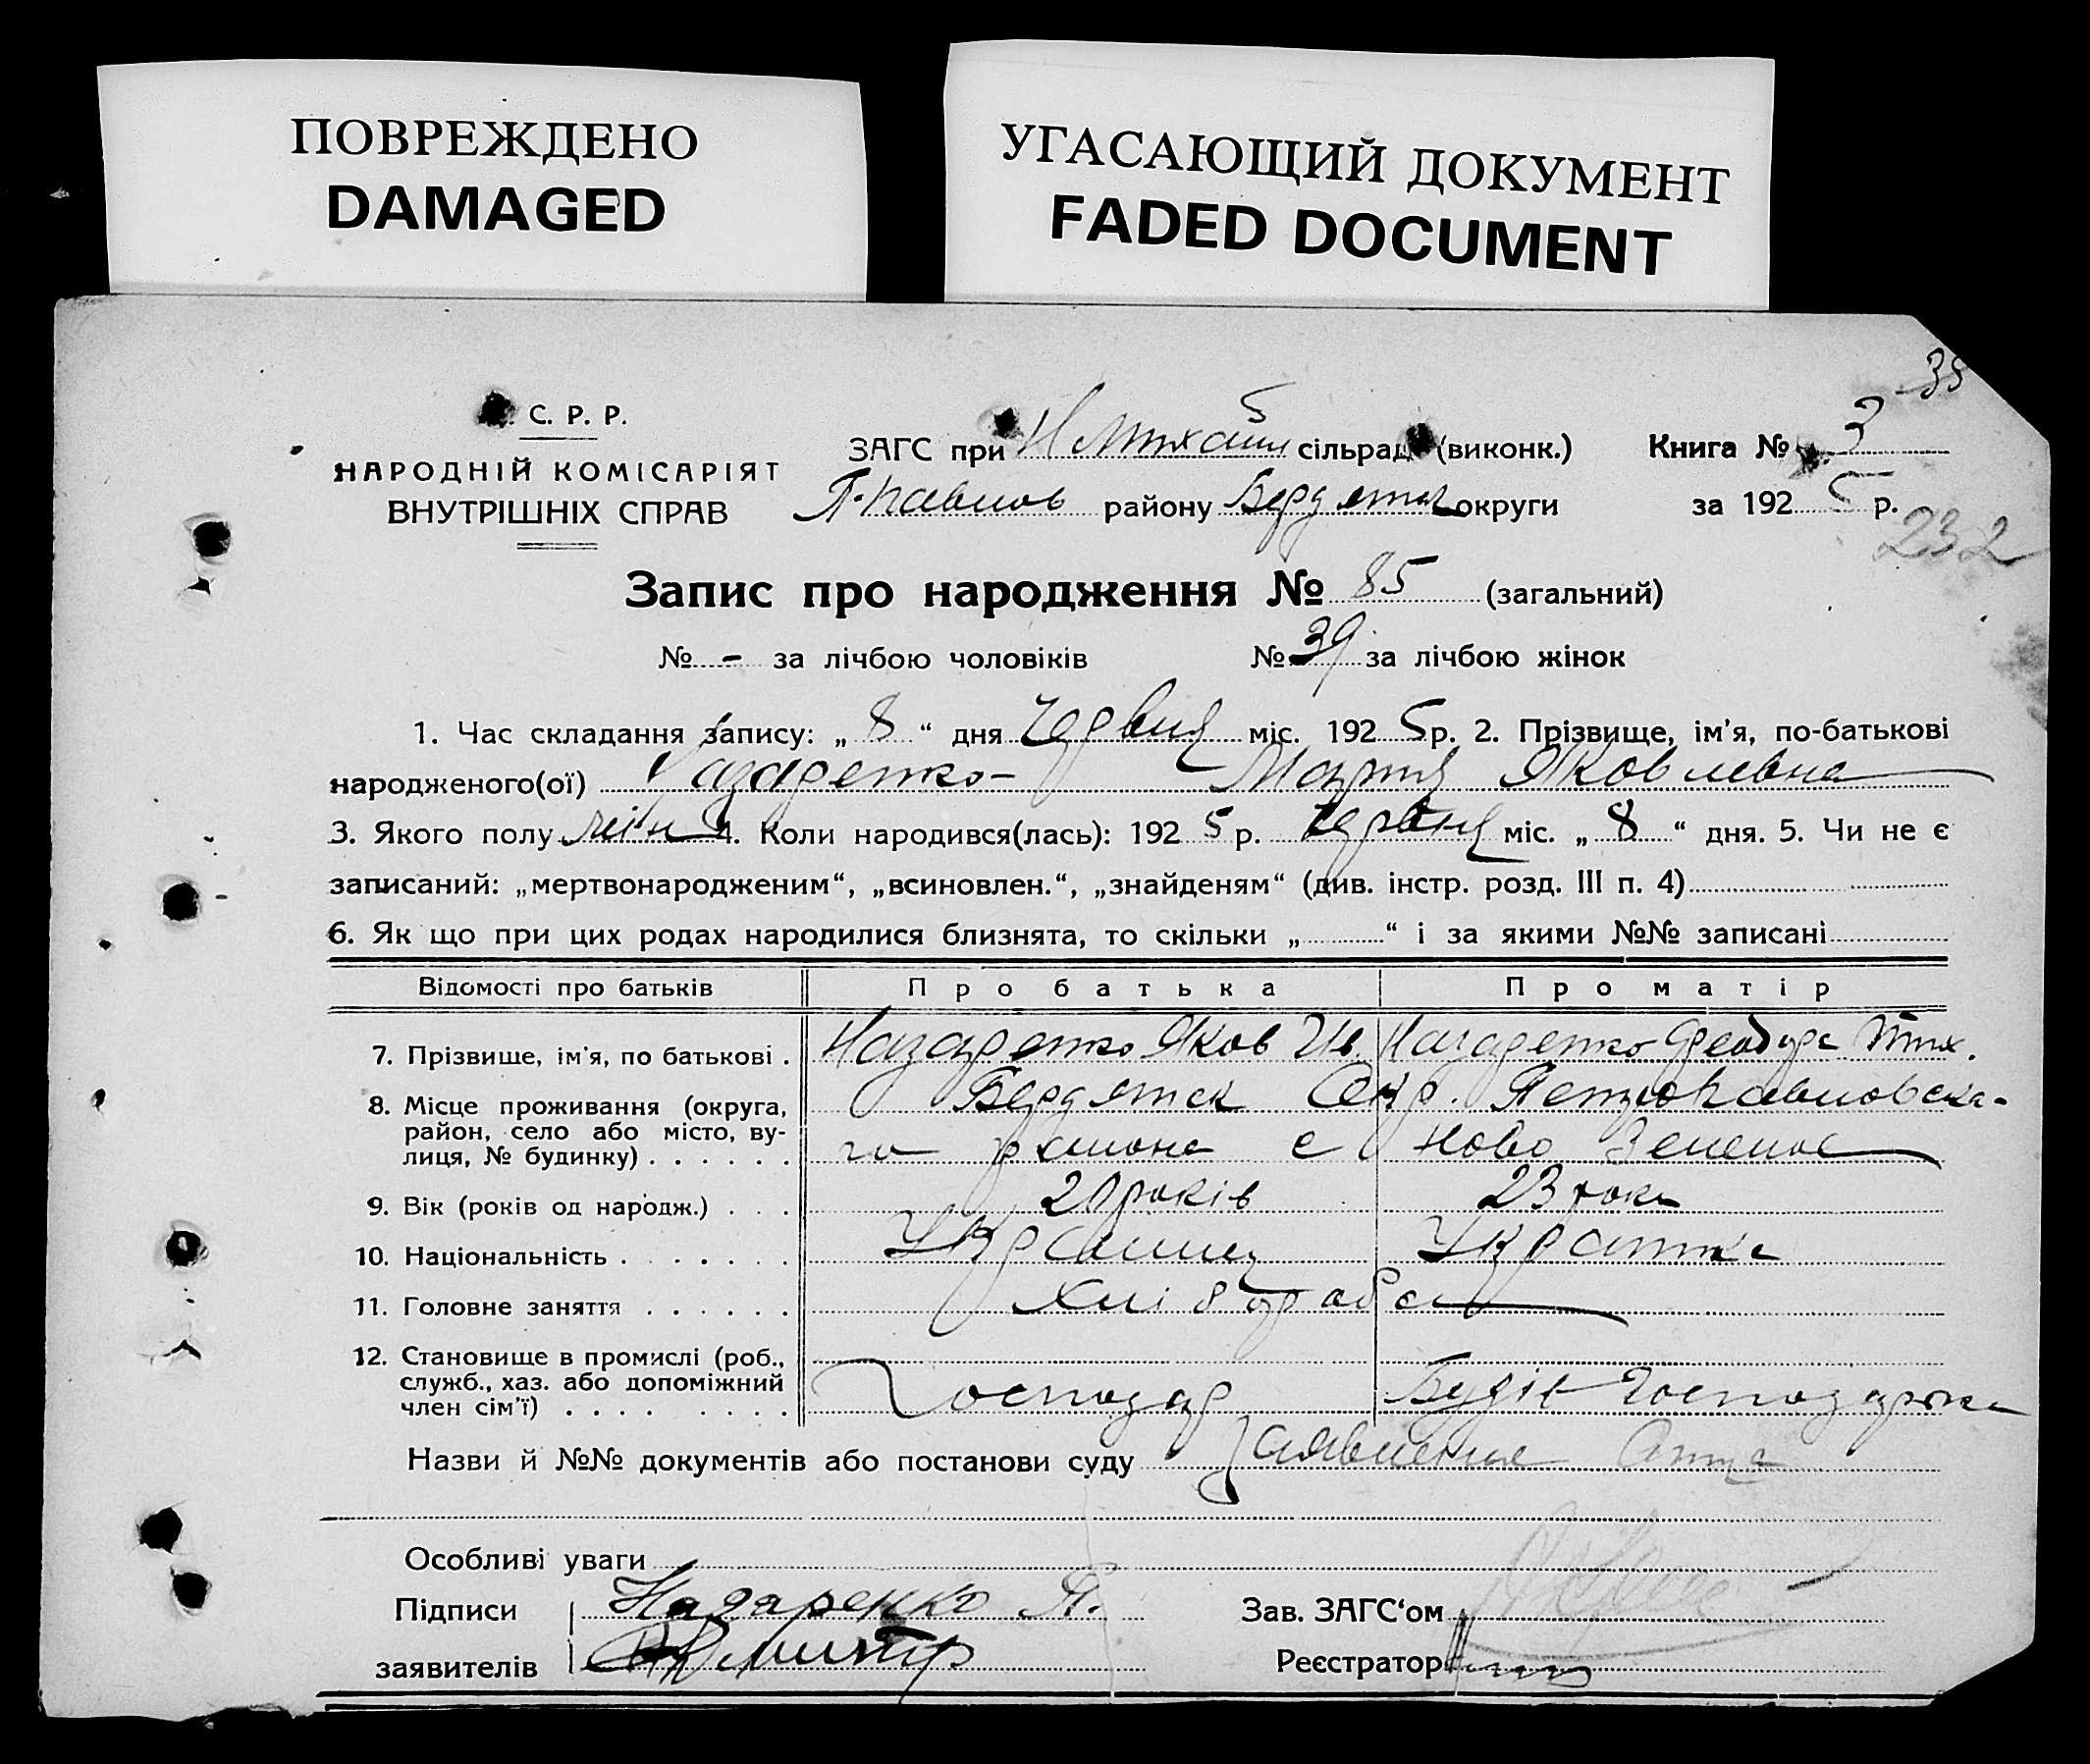 ПОВРЕЖДЕНО
DAMAGED
УГАСАЮЩИЙ ДОКУМЕНТ
FADED DOCUMENT
35
С. Р. Р.
НАРОДНІЙ КОМІСАРІЯТ
ВНУТРІШНІХ СПРАВ
ЗАГС при Н Михайл сільрад (виконк.)
П-Павлов району Бердянск округи
Книга № 3
за 1925 р.
232
Запис про народження № 85 (загальний)
№ - за лічбою чоловіків № 39 за лічбою жінок
1. Час складання запису: „ 8 “ дня Червня міс. 1925 р. 2. Прізвище, ім'я, по-батькові
народженого(ої) Назаренко - Мария Яковлевна
3. Якого полу жін 4. Коли народився(лась): 1925 р. Червня міс. „ 8 “ дня. 5. Чи не є
записаний: „мертвонародженим“, „всиновлен.“, „знайденям“ (див. інстр. розд. III п. 4)
6. Як що при цих родах народилися близнята, то скільки „ “ і за якими №№ записані
Відомості про батьків Про батька Про матір
7. Прізвище, ім'я, по батькові . Назаренко Яков Ив. Назаренко Феодора Тим.
8. Місце проживання (округа, Бердянск Окр. Петропавловска-
район, село або місто, ву-
лиця, № будинку) . . . . . . го района с Ново Зеленое
9. Вік (років од народж.) . . . років 23 роки
10. Національність . . . . . . . Українец Українка
11. Головне заняття . . . . . . Хліборобст
12. Становище в промислі (роб.,
служб., хаз. або допоміжний
член сім'ї) . . . . . . . . . Господар господарка
Назви й №№ документів або постанови суду Заявление Отца
Особливі уваги
Підписи Назаренко Я.
заявителів
Зав. ЗАГС‘ом
Реєстратор